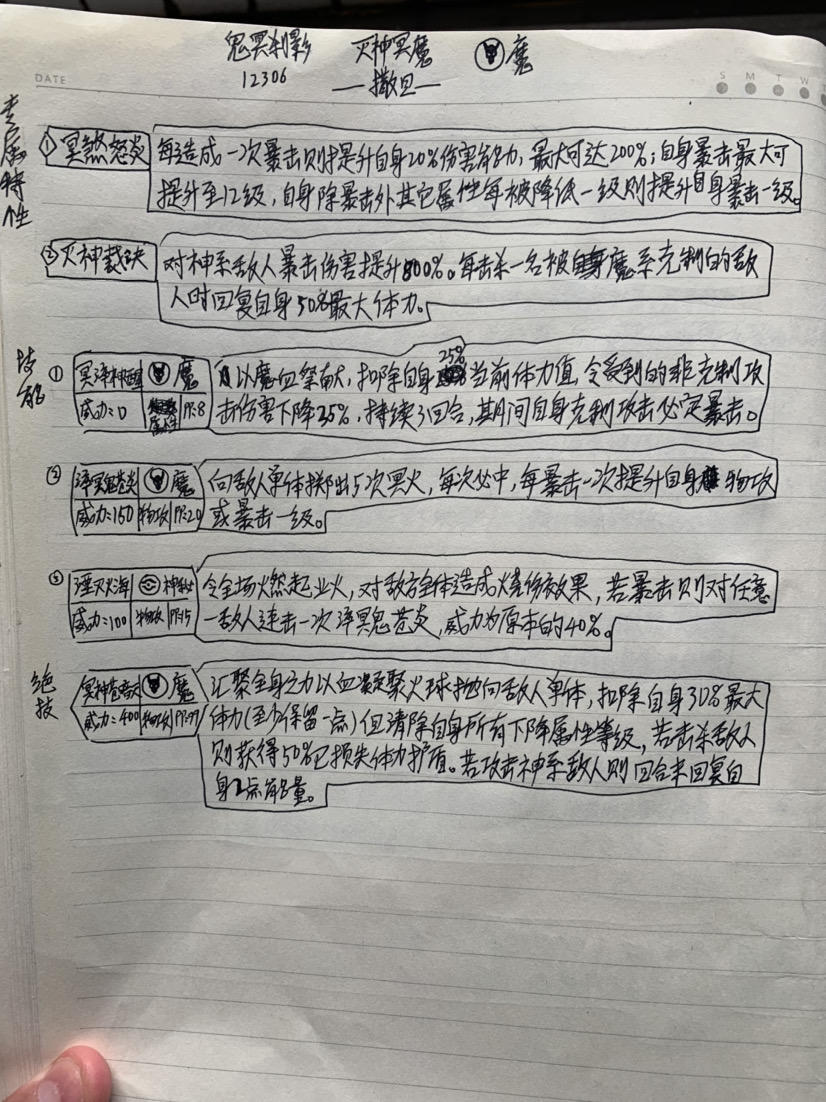 鬼冥刹影 灭神冥魔 魔
12306 —撒旦—
DATE S M T W T
专属特性
① 冥煞怒炎 每造成一次暴击则提升自身20%伤害能力,最大可达200%;自身暴击最大可
提升至12级,自身除暴击外其它属性每被降低一级则提升自身暴击一级。
② 灭神裁决 对神系敌人暴击伤害提升800%。每击杀一名被魔系克制的敌
人时回复自身50%最大体力。
技能
① 魔 以魔血祭献,扣除自身25%当前体力值,令受到的非克制攻
威力:0 属性 PP:8 击伤害下降25%,持续3回合,其间自身克制攻击必定暴击。
② 魔 向敌人单体掷出5次冥火,每次必中,每暴击一次提升自身物攻
威力:150 物攻 PP:20 或暴击一级。
③ 湮灭火海 神秘 令全场火燃起业火,对敌方全体造成烧伤效果,若暴击则对任意
威力:100 物攻 PP:15 一敌人连击一次 冥鬼苍炎,威力为原本的40%。
绝技
魔 汇聚全身之力以血凝聚火球抛向敌人单体,扣除自身30%最大
威力:400 物攻 体力(至少保留一点)但清除自身所有下降属性等级,若击杀敌人
则获得50%已损失体力护盾。若攻击神系敌人则回合末回复自
身2点能量。